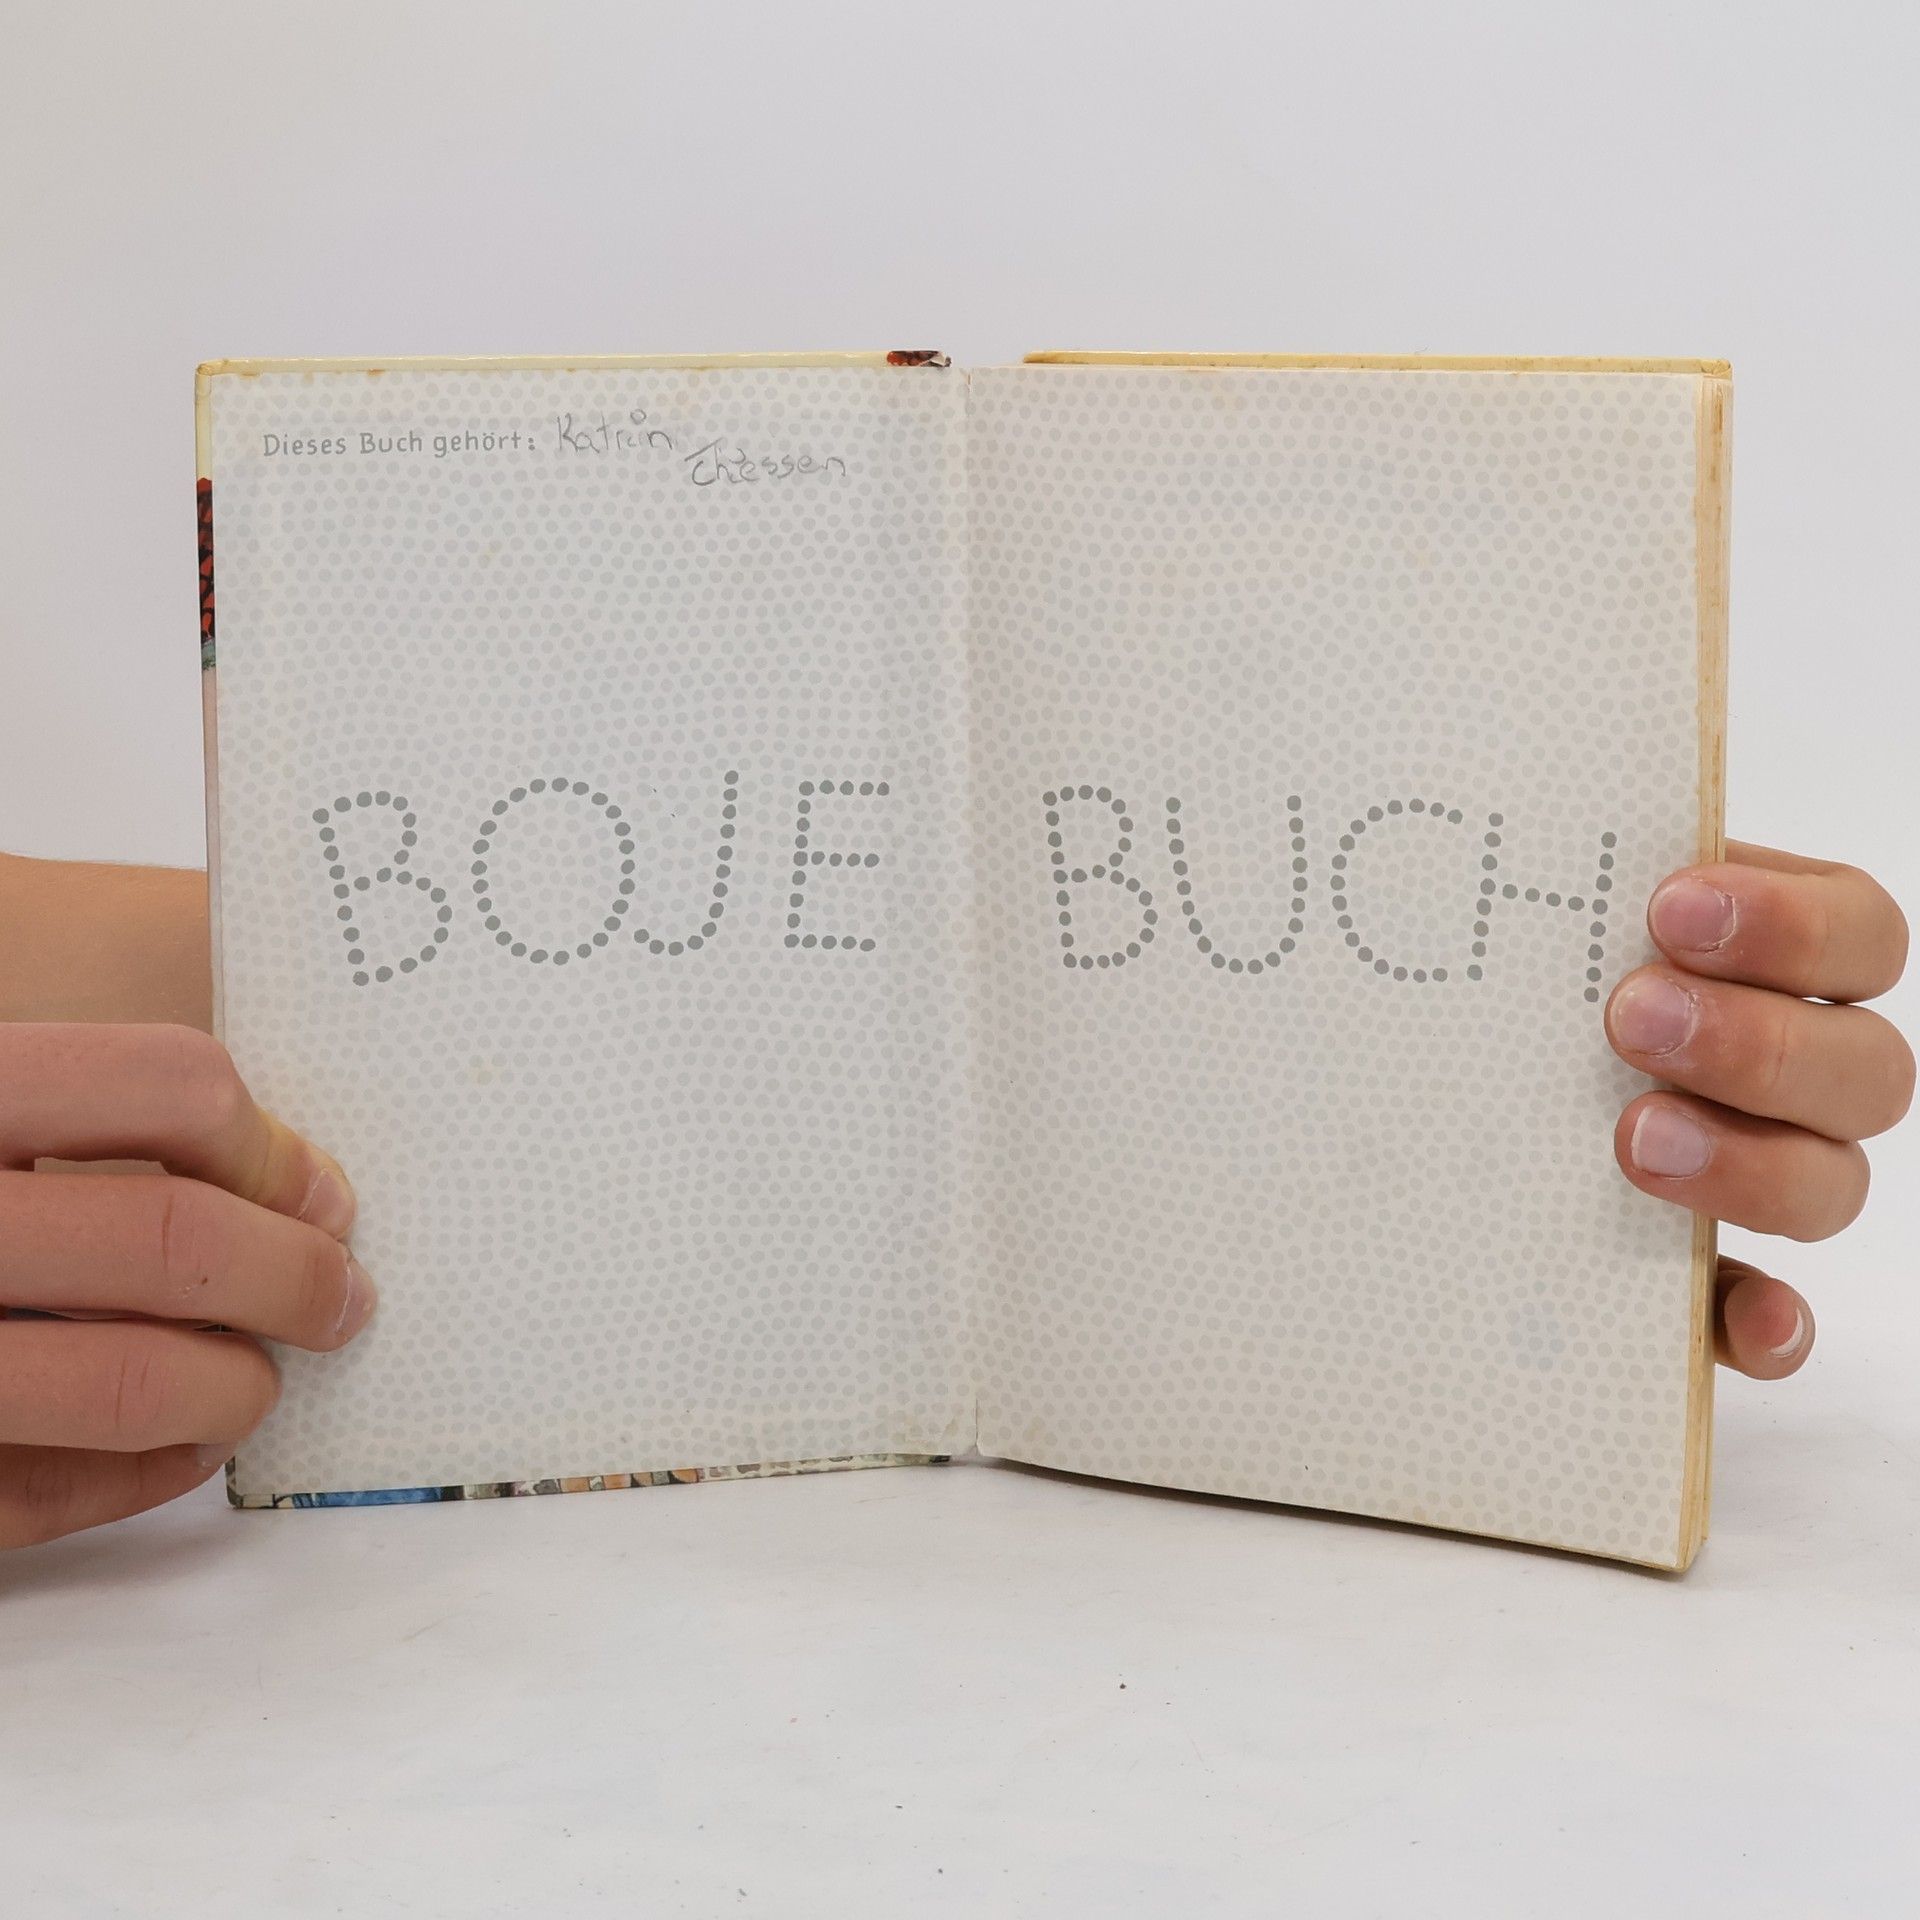 Dieses Buch gehört: Katrin
Thiessen
BOJE BUCH